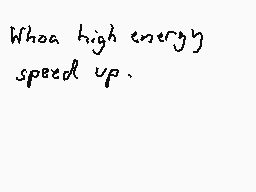 Whoa high energy
speed up.